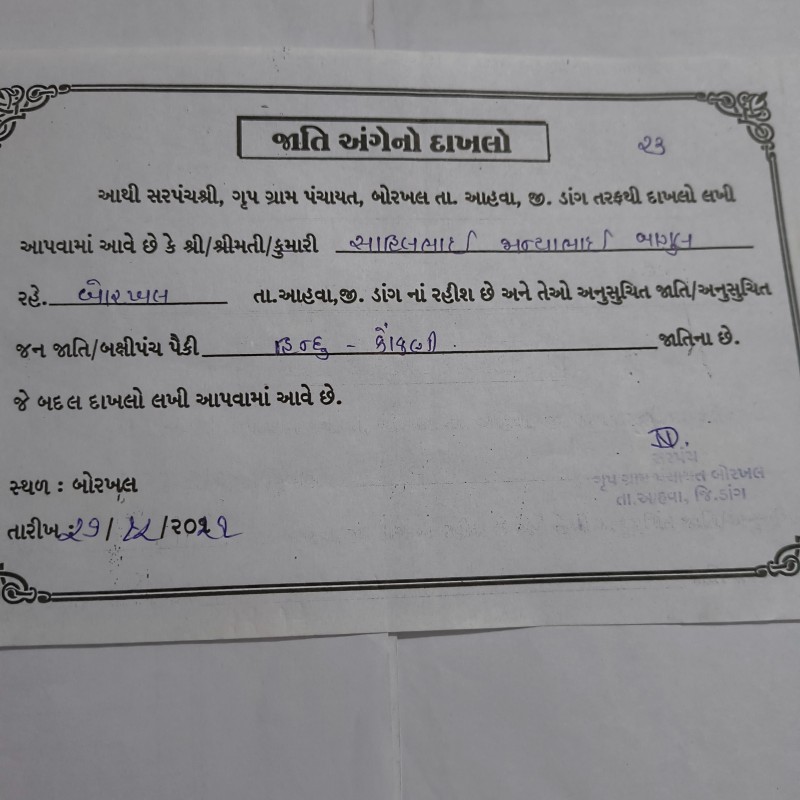 જાતિ અંગેનો દાખલો
૨૩
આથી સરપંચશ્રી, ગૃપ ગ્રામ પંચાયત, બોરખલ તા. આહવા, જી. ડાંગ તરફથી દાખલો લખી
આપવામાં આવે છે કે શ્રી/શ્રીમતી/કુમારી સાહિલભાઈ મન્યાભાઈ બાગુલ
રહે. બોરખલ તા.આહવા,જી. ડાંગ નાં રહીશ છે અને તેઓ અનુસુચિત જાતિ/અનુસુચિત
જન જાતિ/બક્ષીપંચ પૈકી હિન્દુ - કોંકણી. જાતિના છે.
જે બદલ દાખલો લખી આપવામાં આવે છે.
સરપંચ
ગૃપ ગ્રામ પંચાયત બોરખલ
તા.આહવા, જિ.ડાંગ
સ્થળ : બોરખલ
તારીખ :